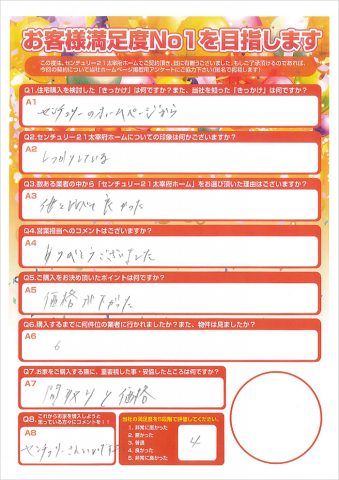 お客様満足度No1を目指します
この度は、センチュリー21太宰府ホームでご契約頂き、誠に有難うございました。もしご了承頂けるのであれば、
今回の契約について当社ホームページ掲載用アンケートにご協力下さい(匿名で結構です)
Q1.住宅購入を検討した「きっかけ」は何ですか?また、当社を知った「きっかけ」は何ですか?
A1
センチュリーのホームページから
Q2.センチュリー21太宰府ホームについての印象は何かございますか?
A2
しっかりしている
Q3.数ある業者の中から「センチュリー21太宰府ホーム」をお選び頂いた理由はございますか?
A3
他と比べて良かった
Q4.営業担当へのコメントはございますか?
A4
ありがとうございました
Q5.ご購入をお決め頂いたポイントは何ですか?
A5
価格が下がった
Q6.購入するまでに何件位の業者に行かれましたか?また、物件は見ましたか?
A6
6
Q7.お家をご購入する際に、重要視した事・妥協したところは何ですか?
A7
間取りと価格
Q8.
これからお家を購入しようと
思っている方々にコメントを!!
A8
センチュリーさんいいですよ
当社の満足度を5段階で評価してください。
1. 非常に悪かった
2. 悪かった
3. 普通
4. 良かった
5. 非常に良かった
4